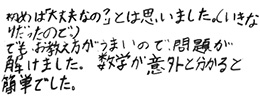 初めは「大丈夫なの?」とは思いました。(いきな
りだったので)
でも、お教え方がうまいので、問題が
解けました。数学が意外と分かると
簡単でした。